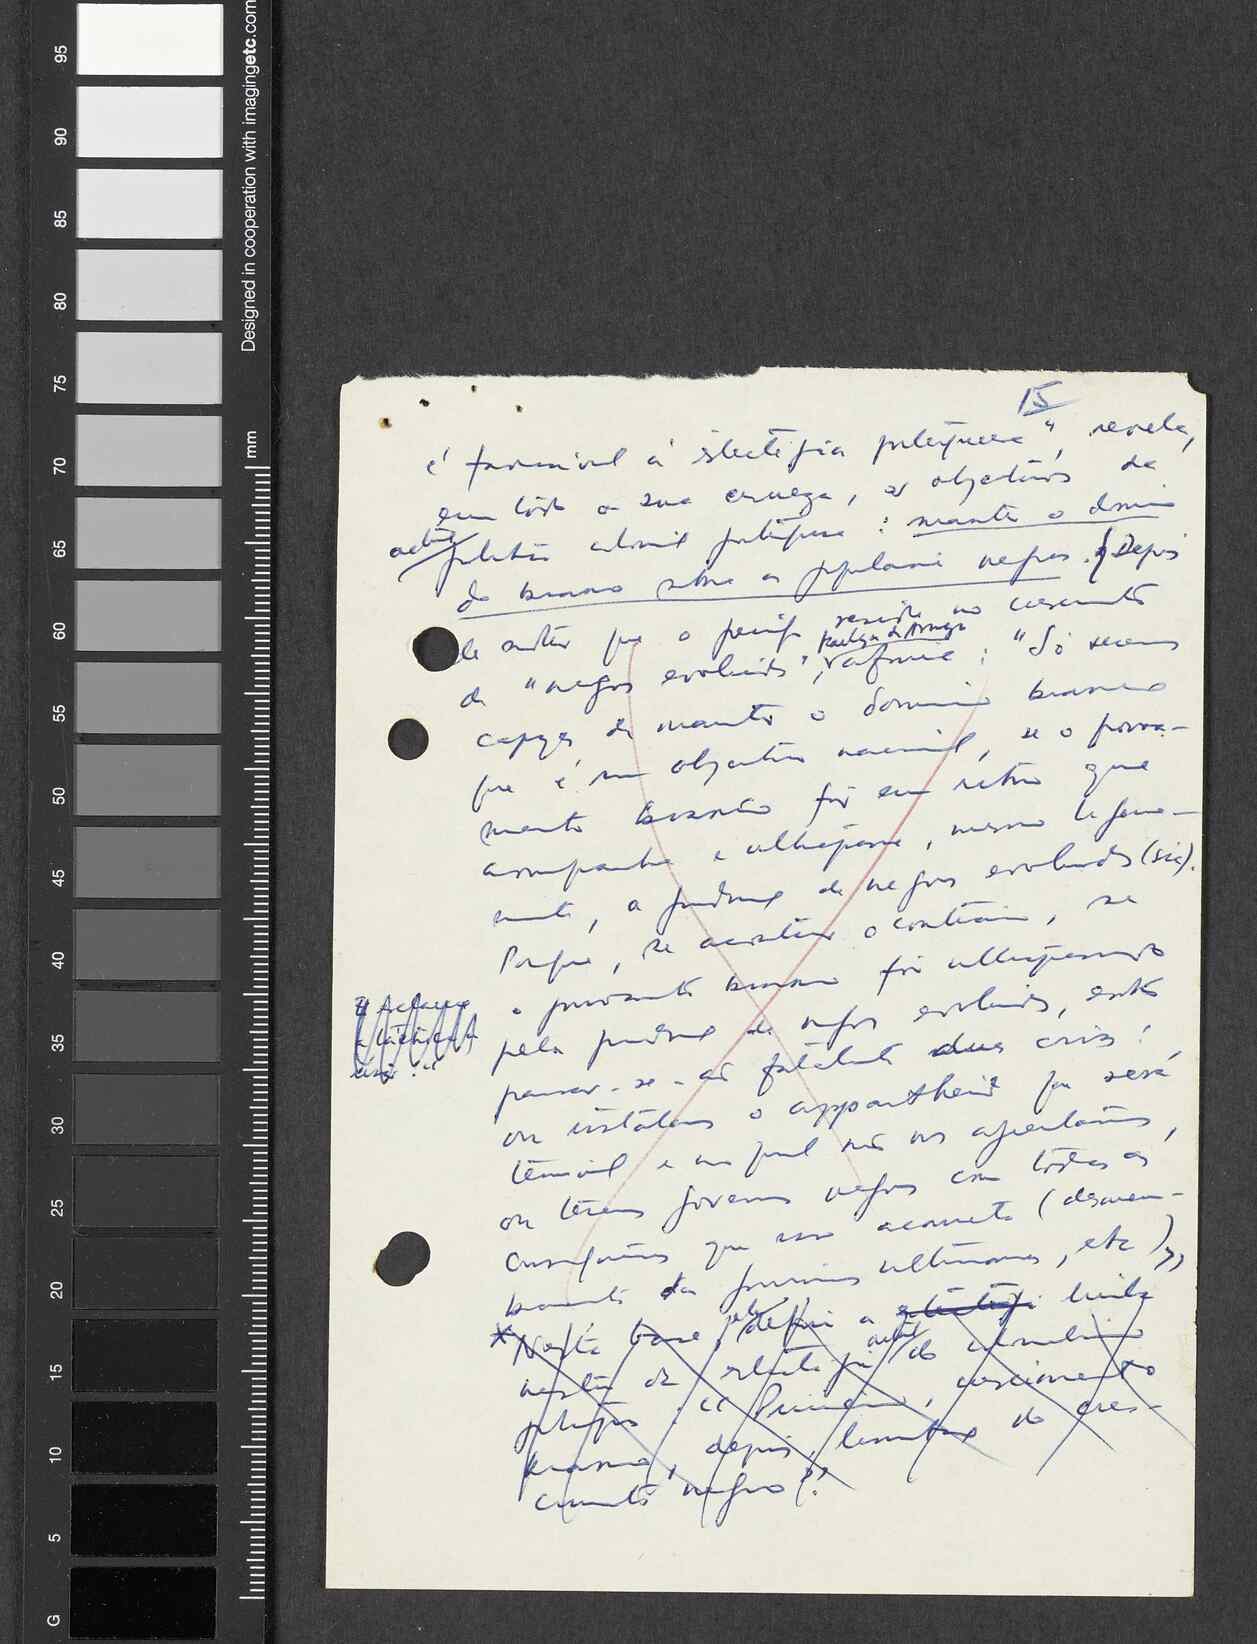 95
90
85
80
75
70
65
60
55
50
45
40
35
30
25
20
15
10
5
G
Designed in cooperation with imagingetc.com
mm
15
é favorável à estratégia portuguesa", revela,
em toda a sua crueza, os objectivos da
política colonial portuguesa : manter o domínio
do branco sobre as populações negras. Depois
de que o perigo reside no crescimento
de "negros evoluídos", Kaúlza de Arriaga afirma : "Só seremos
capazes de manter o domínio branco
que é um objectivo nacional, se o povoa-
mento branco for em ritmo que
acompanhe e ultrapasse, mesmo ligeira-
mente, a produção de negros evoluídos (sic).
Porque, se acontecer o contrário, se
o povoamento branco for ultrapassado
pela produção de negros evoluídos, então
passar-se-ão fatalmente duas coisas :
ou instalamos o apparteid que será
terrível e no qual não nos aguentamos,
ou teremos governos negros com todas as
consequências que isso acarreta (desmem-
bramento das províncias ultramarinas, etc)"
* Nesta base, define a estratégia
da estratégia do colonialismo
português : "Primeiro, crescimento
branco, depois, do cres-
cimento negro".